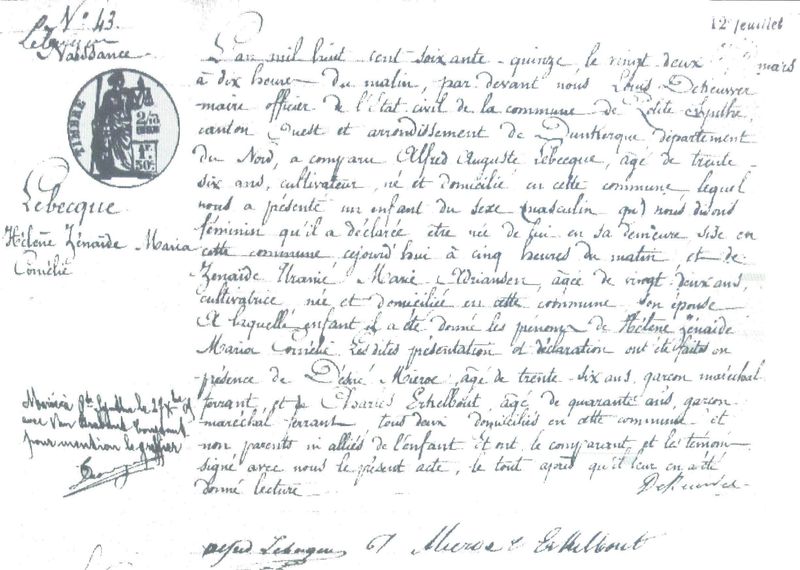 N° 43.
Naissance
12 jeuillet
L'an mil huit cent soixante-quinze, le vingt deux mars
à dix heures du matin, par devant nous Louis
maire officier de l'Etat civil de la commune de Petite Synthe,
canton Ouest et arrondissement de Dunkerque département
du Nord, a comparu Alfred Auguste Lebecque, âgé de trente-
six ans, cultivateur, né et domicilié en cette commune lequel
nous a présenté un enfant du sexe (masculin qu) nous disons
féminin qu'il a déclarée être née de lui en sa demeure sise en
cette commune cejourd'hui à cinq heures du matin et de
Zénaïde Uranie Marie Adriansen, âgée de vingt-deux ans,
cultivatrice née et domiciliée en cette commune son épouse
A laquelle enfant il a été donné les prénoms de Hélène Zénaïde
Maria Cornélie. Les dites présentation et déclaration ont été faites en
présence de Désiré Meroc, âgé de trente-six ans, garçon maréchal
ferrant, et de Charles Erkelbout, âgé de quarante ans, garçon
maréchal ferrant tous deux domiciliés en cette commune et
non parents ni alliés de l'enfant et ont, le comparant et les témoins
signé avec nous le présent acte, le tout après qu'il leur en a été
donné lecture
TIMBRE
2/10
1F
50c
Lebecque
Hélène Zénaïde Maria
Cornélie
pour mention le greffier
Alfred Lebecque
Meroc
Erkelbout